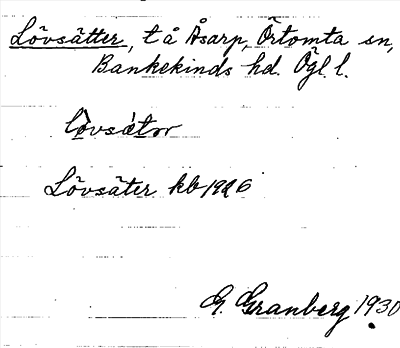 Lövsätter, t å Åsarp, Örtomta sn,
Bankekinds hd. Ögl. l.
lòvsátor
Lövsäter kb 1926
G. Granberg 1930